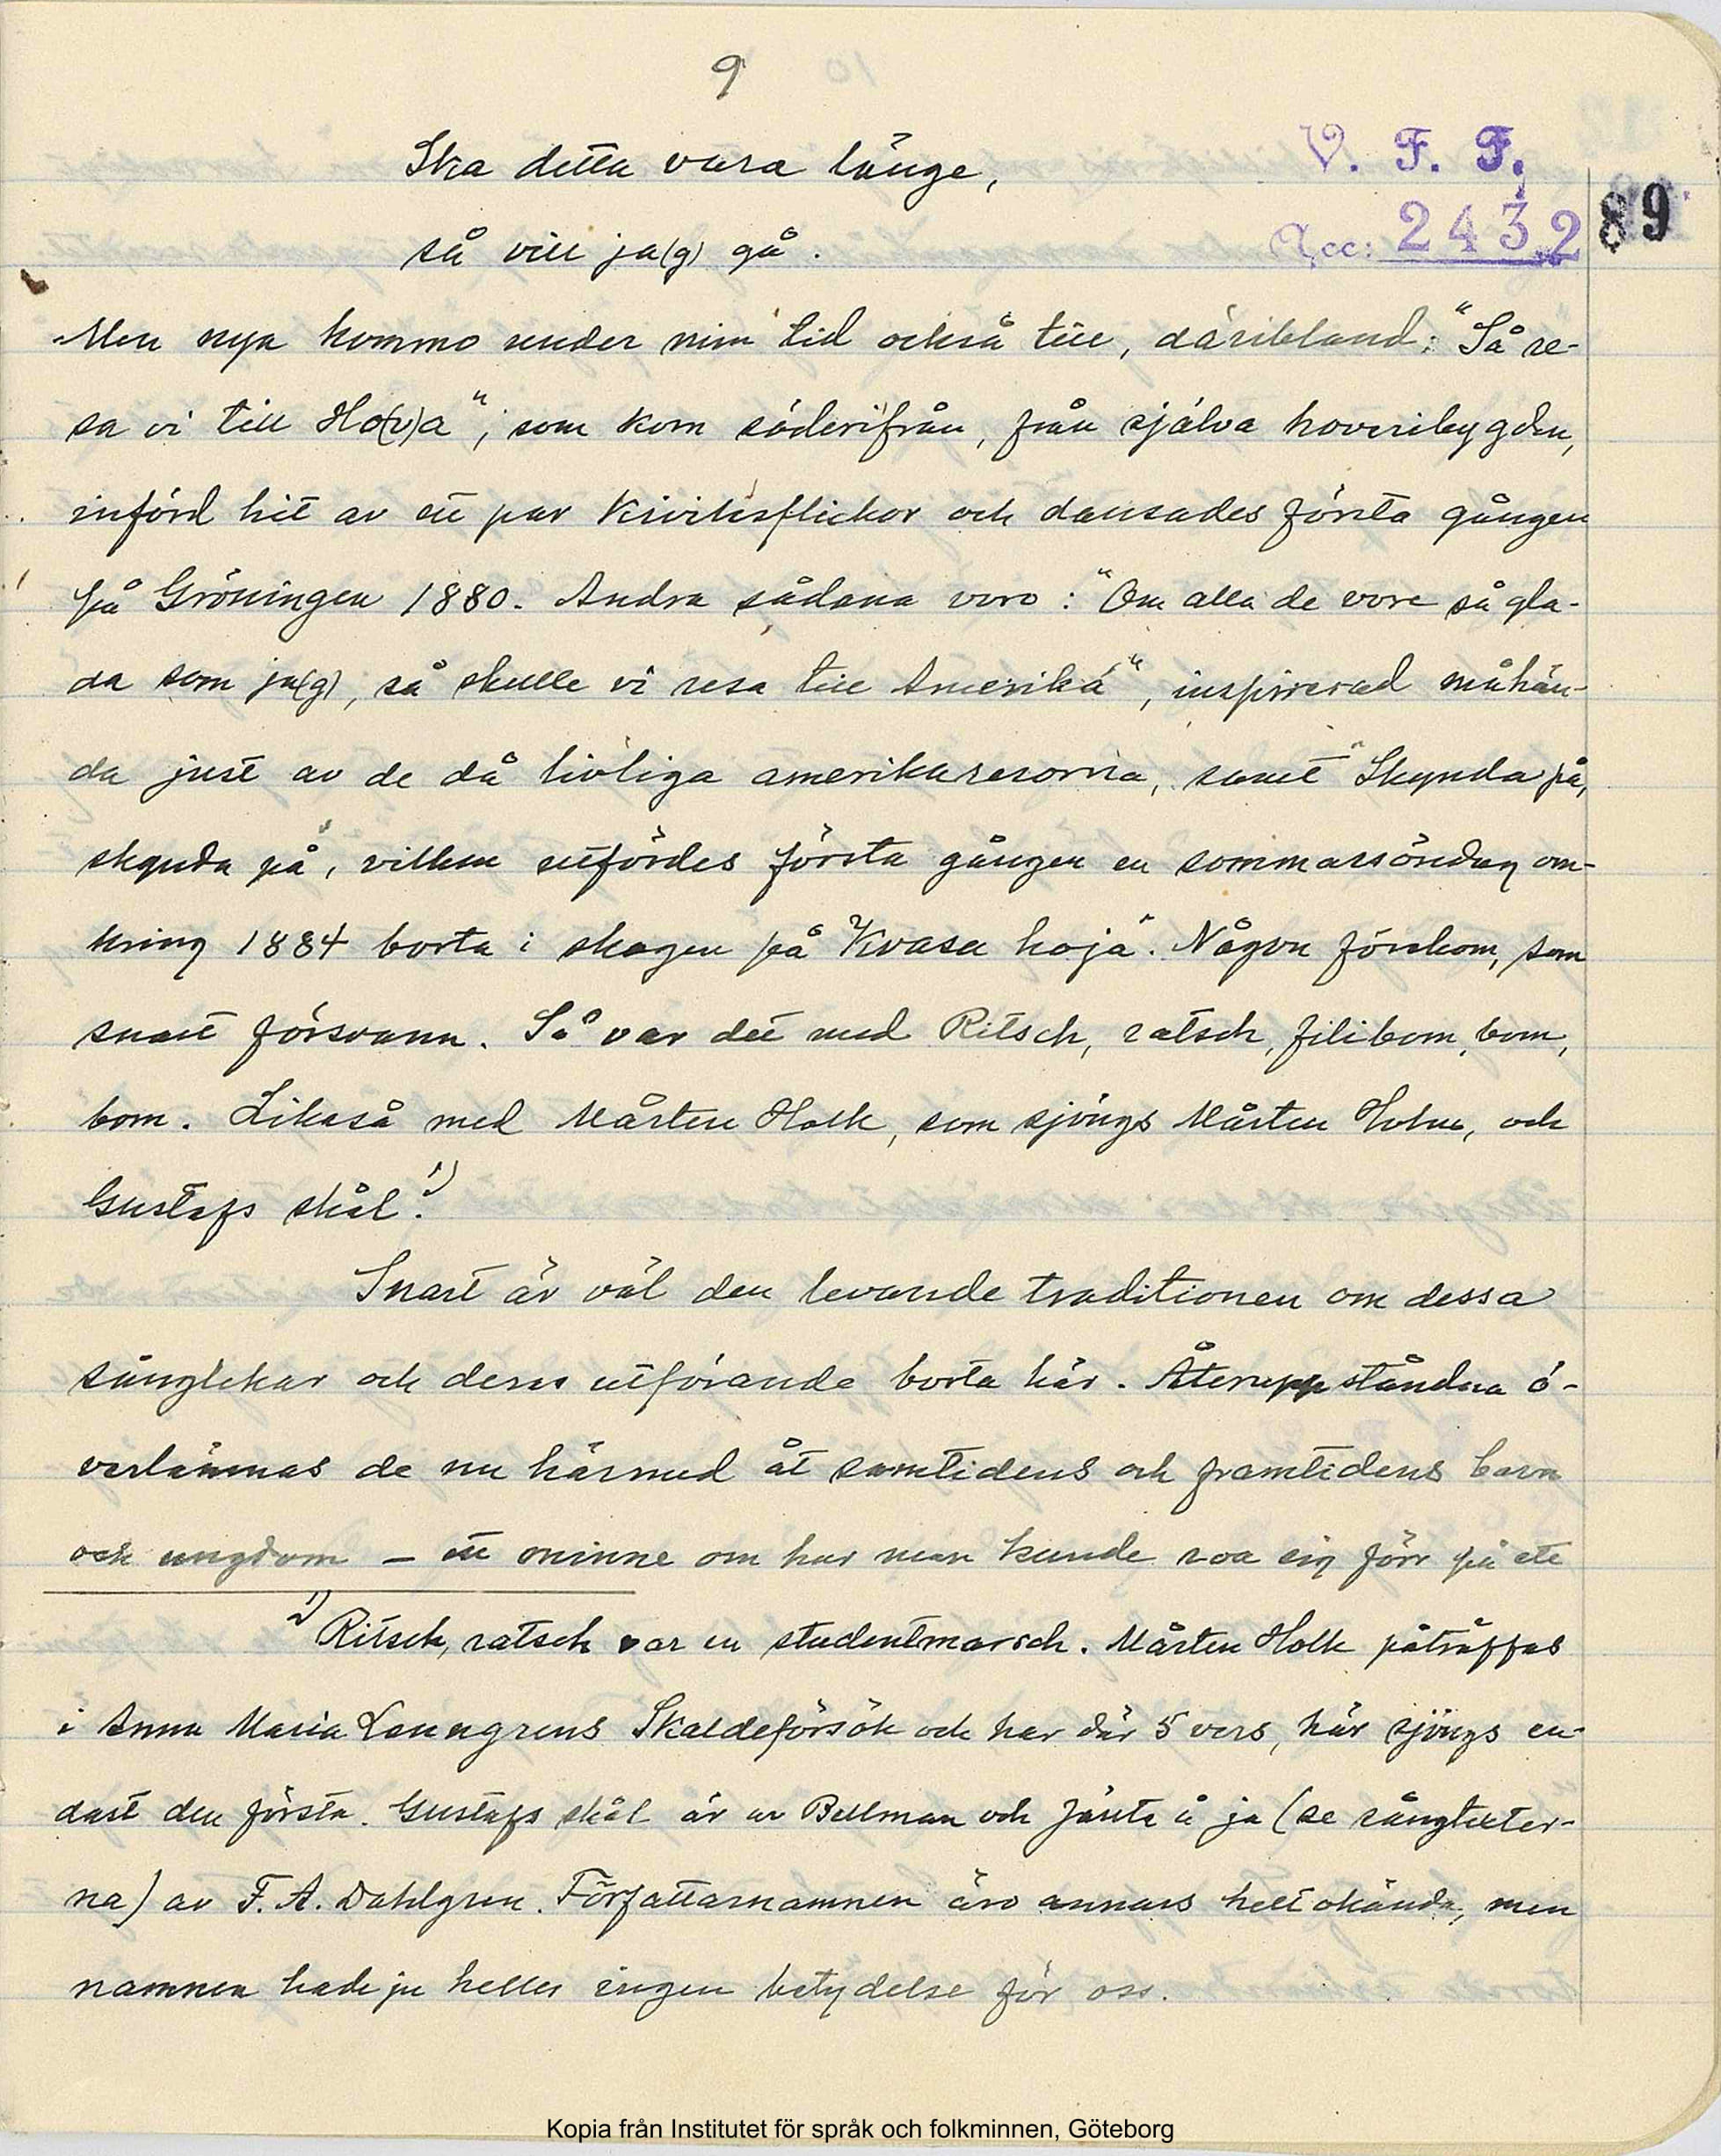 9
Ska detta vara länge,
V. F. F.
så vill ja(g) gå.
Acc: 2432
89
Men nya kommo under min tid också till, däribland: "Så re-
sa vi till Ho(v)a", som kom söderifrån, från själva hoveribygden,
införd hit av ett par Kiviksflickor och dansades första gången
på Gröningen 1880. Andra sådana voro: "Om alla de vore så gla-
da som ja(g), så skulle vi resa till Amerika", inspirerad måhän-
da just av de då livliga amerikaresorna, samt "Skynda på,
skynda på", vilken utfördes första gången en sommarsöndag om-
kring 1884 borta i skogen på "Kvasa hoja". Någon förekom, som
snart försvann. Så var det med Ritsch, ratsch, filibom, bom,
bom. Likaså med Mårten Holk, som sjöngs Mårten Holm, och
Gustafs skål. 1)
Snart är väl den levande traditionen om dessa
sånglekar och deras utförande borta här. Återuppståndna ö-
verlämnas de nu härmed åt samtidens och framtidens barn
och ungdom – ett minne om hur man kunde roa sig förr på ett
1) Ritsch, ratsch var en studentmarsch. Mårten Holk påträffas
i Anna Maria Lenngrens Skaldeförsök och har där 5 vers, här sjöngs en-
dast den första. Gustafs skål är av Bellman och Jänta å ja (se sångtexter-
na) av F. A. Dahlgren. Författarnamnen äro annars helt okända, men
namnen hade ju heller ingen betydelse för oss.
Kopia från Institutet för språk och folkminnen, Göteborg